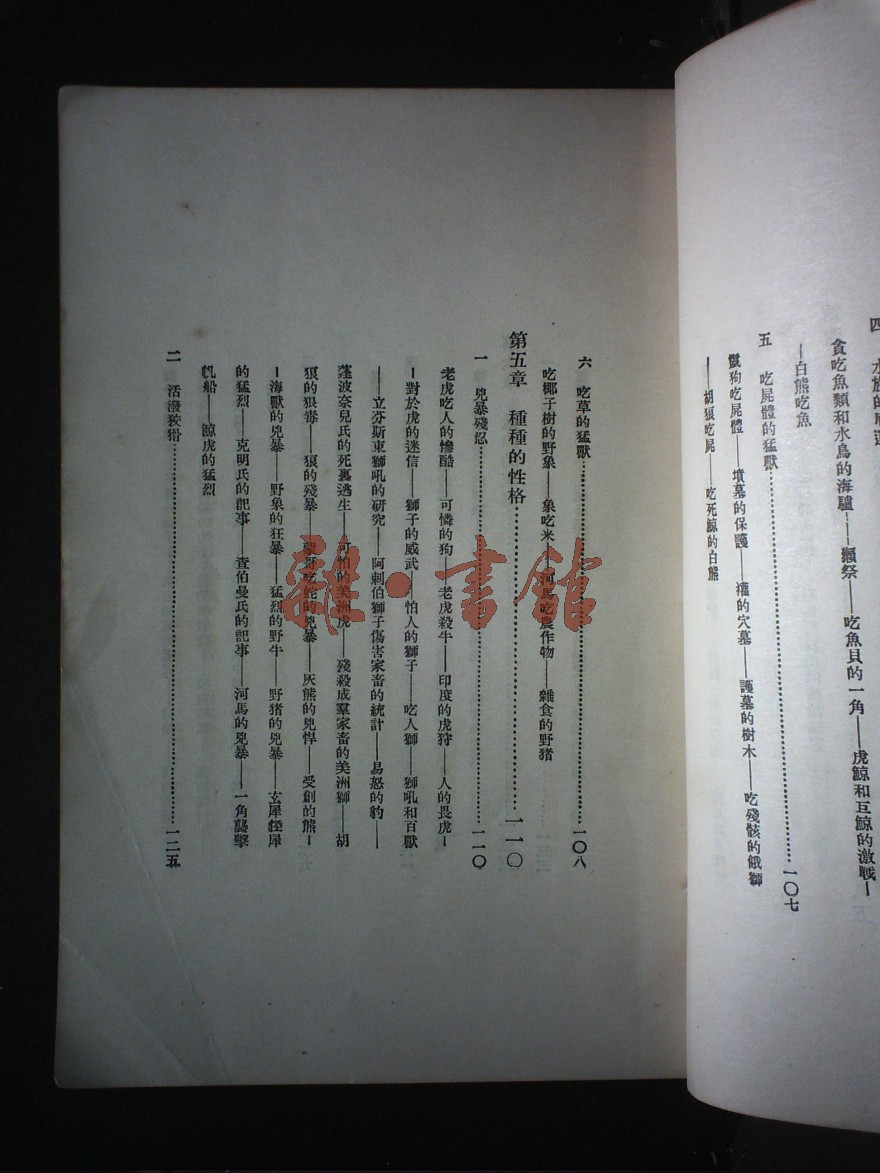 四 水族的
貪吃魚類和水鳥的海驢——獺祭——吃魚貝的一角——虎鯨和巨鯨的激戰—
—白熊吃魚
五 吃屍體的猛獸……一〇七
鬣狗吃屍體——墳墓的保護——獾的穴墓——護墓的樹木——吃殘骸的餓獅
——胡狼吃屍——吃死鯨的白熊
六 吃草的猛獸……一〇八
吃椰子樹的野象——象吃米——河馬吃農作物——雜食的野猪
第五章 種種的性格……一一〇
一 兇暴殘忍……一一〇
老虎吃人的慘酷——可憐的狗——老虎殺牛——印度的虎狩——人的畏虎—
—對於虎的迷信——獅子的威武——怕人的獅子——吃人獅——獅吼和百獸
——立芬斯東獅吼的研究——阿剌伯獅子傷害家畜的統計——易怒的豹——
蓬波奈兒氏的死裏逃生——可怕的美洲虎——殘殺成羣家畜的美洲獅——胡
狼的狠毒——狼的殘暴——蒙哥吃蛇的兇暴——灰熊的兇悍——受創的熊—
—海獸的兇暴——野象的狂暴——猛烈的野牛——野猪的兇暴——玄犀
的猛烈——克明氏的記事——查伯曼氏的記事——河馬的兇暴——一角襲擊
帆船——鯨虎的猛烈
二 活潑狡猾……一二五
雜·書館